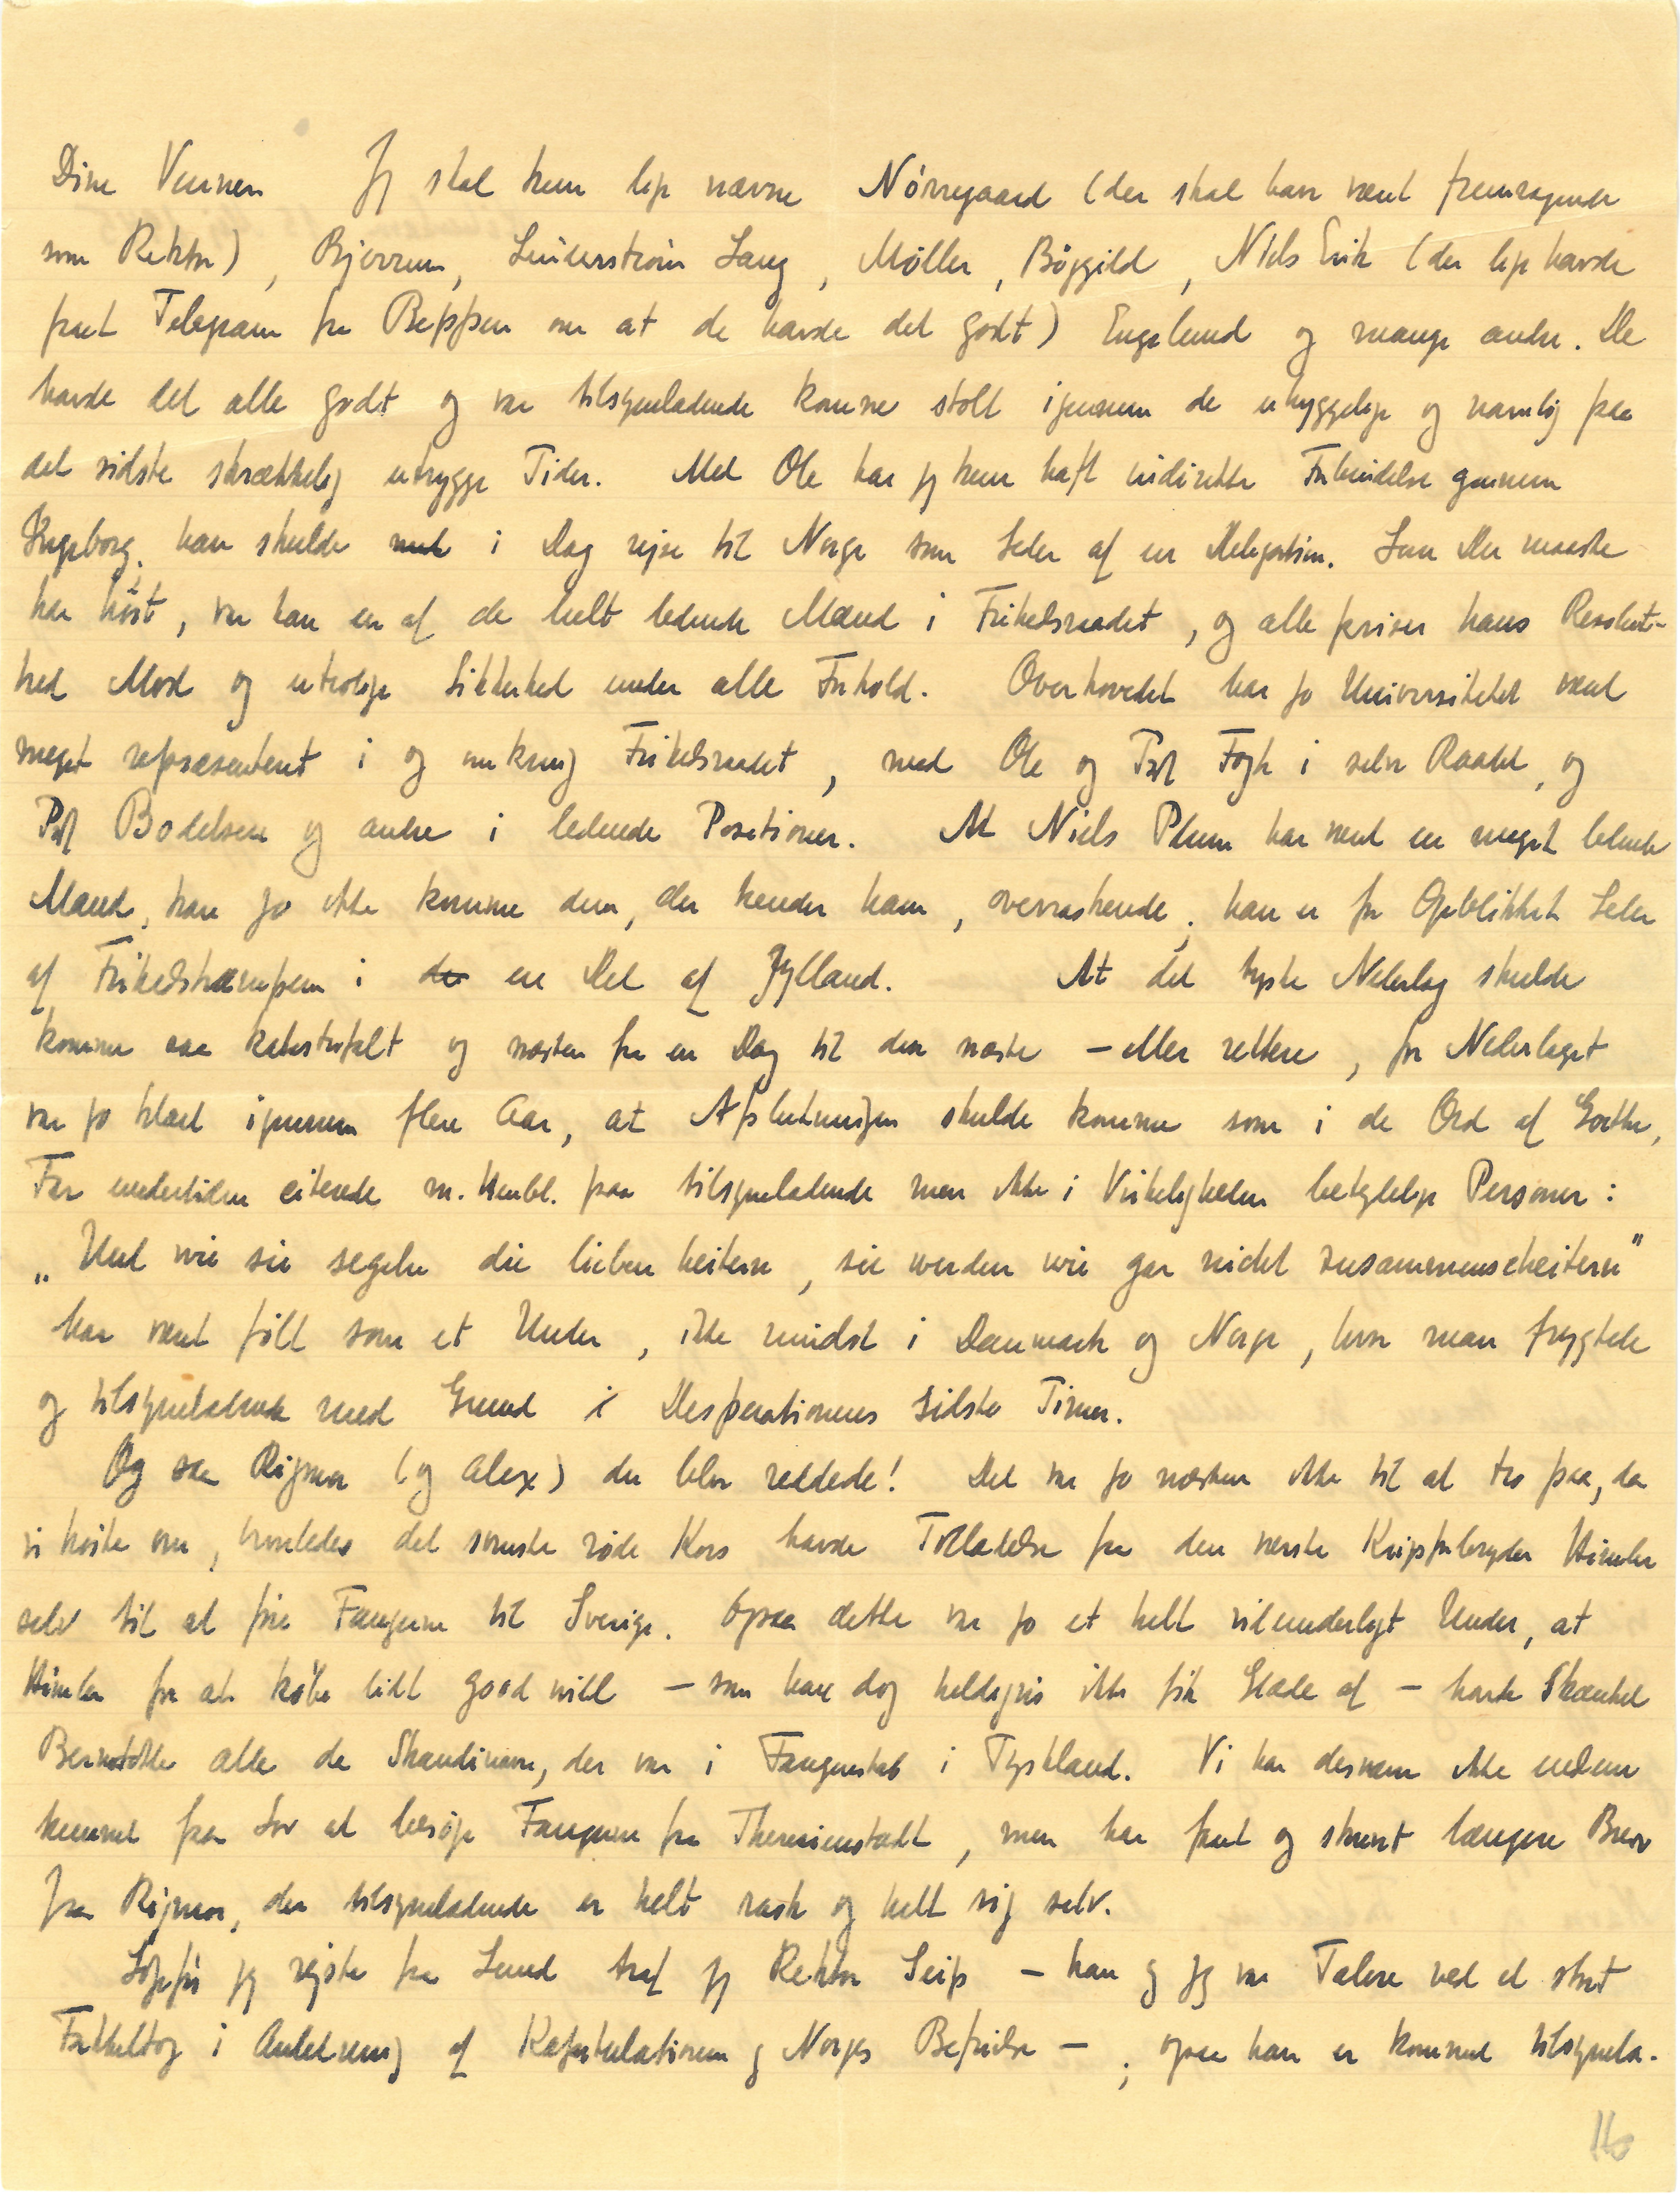 Dine Venner   Jeg skal kun lige nævne Nörregaard (der skal have været fremragende
som Rektor), Bjerrum, Linderstrøm Lang, Møller, Böggild, Niels Erik (der lige havde
faaet Telegram fra Beppen om at de havde det godt) Engelund og mange andre. De
havde det alle godt og var tilsyneladende komne stolt igennem de uhyggelige og navnlig paa
det sidste skrækkelig utrygge Tider. Med Ole har jeg kun haft indirekte Forbindelse gennem
Ingeborg, han skulde i Dag rejse til Norge som Leder af en Delegation. Som Du maaske
har hört, var han en af de helt ledende Mænd i Frihedsraadet, og alle priser hans Resolut-
hed Mod og utrolige Sikkerhed under alle Forhold. Overhovedet har jo Universitetet været
meget repræsenteret i og omkring Frihedsraadet, med Ole og Prof Fogh i selve Raadet, og
Prof Bodelsen og andre i ledende Positioner. At Niels Plum har været en meget ledende
Mand, kan jo ikke komme dem, der kender ham, overraskende; han er for Øjeblikket Leder
af Frihedskampen i de en Del af Jylland.   At det tyske Nederlag skulde
komme saa katastrofalt og næsten fra en Dag til den næste – eller rettere, for Nederlaget
var jo klart igennem flere Aar, at Afslutningen skulde komme som i de Ord af Goethe,
Far undertiden citerede m. Henbl. paa tilsyneladende men ikke i Virkeligheden betydelige Personer:
„Und wie sie segeln die lieben heitern, sie werden wie gar nicht zusammenscheitern"
har været følt som et Under, ikke mindst i Danmark og Norge, hvor man frygtede
og tilsyneladende med Grund i Desperationens sidste Timer.
Og saa Rigmor (og Alex) der blev reddede! Det var jo næsten ikke til at tro paa, da
vi hörte om, hvorledes det svenske röde Kors havde Tilladelse fra den værste Krigsforbryder Himler
selv til at före Fangerne til Sverige. Ogsaa dette var jo et helt vidunderligt Under, at
Himler for at købe lidt good will – som han dog heldigvis ikke fik Glæde af – havde skænket
Bernadotte alle de Skandinaver, der var i Fangenskab i Tyskland. Vi har desværre ikke endnu
kunnet faa Lov at besöge Fangerne fra Theresienstadt, men har faaet og skrevet længere Breve
fra Rigmor, der tilsyneladende er helt rask og helt sig selv.
jeg rejste fra Lund traf jeg Rektor Seip – han og jeg var Talere ved et stort
Fakkeltog i Anledning af Kapitulationen og Norges Befrielse – ; ogsaa han er kommet tilsynela-
16